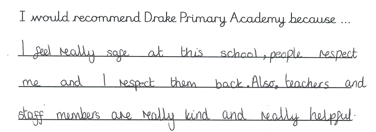 I would recommend Drake Primary Academy because ...
I feel really safe at this school, people respect
me and I respect them back. Also, teachers and
staff members are really kind and really helpful.